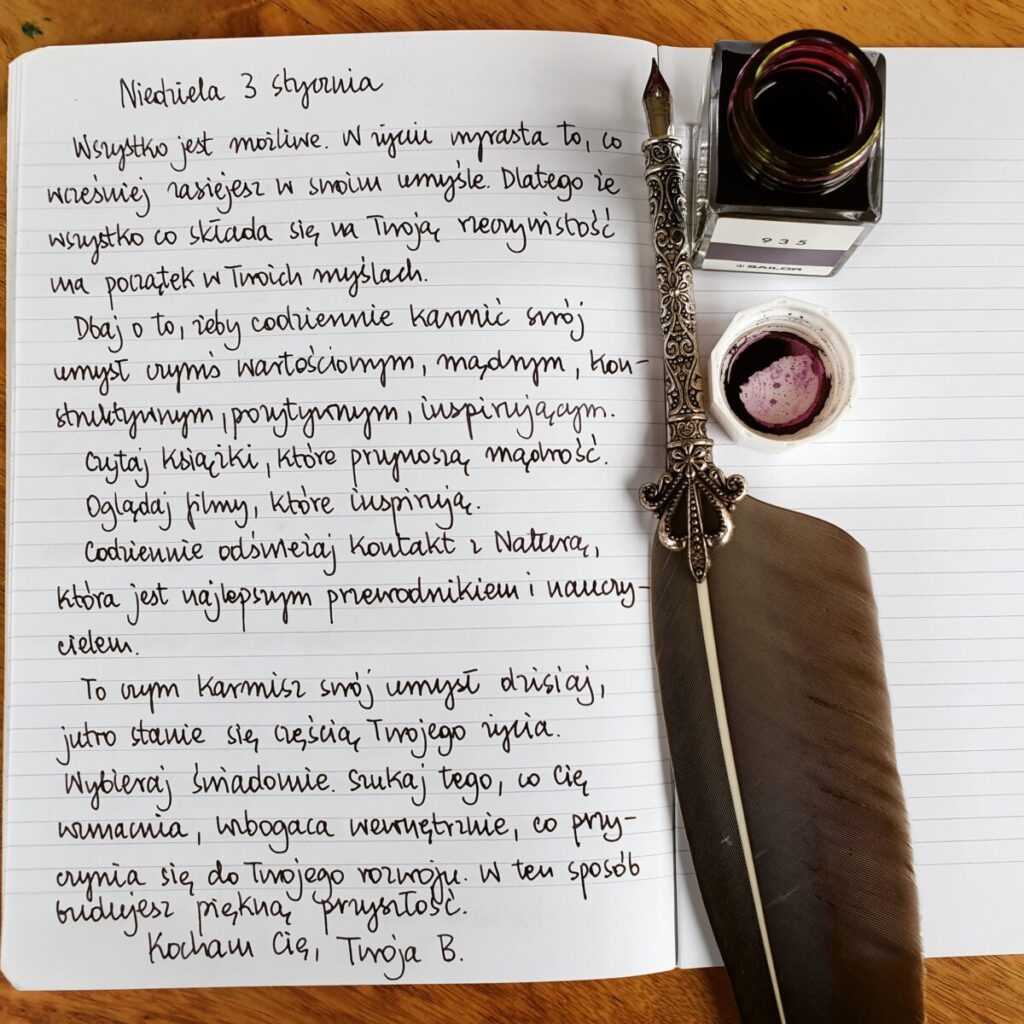 Niedziela 3 stycznia
Wszystko jest możliwe. W życiu wyrasta to, co
wcześniej zasiejesz w swoim umyśle. Dlatego że
wszystko co składa się na Twoją rzeczywistość
ma początek w Twoich myślach.
Dbaj o to, żeby codziennie karmić swój
umysł czymś wartościowym, mądrym, kon-
struktywnym, pozytywnym, inspirującym.
Czytaj książki, które przynoszą mądrość.
Oglądaj filmy, które inspirują.
Codziennie odświeżaj kontakt z Naturą,
która jest najlepszym przewodnikiem i nauczy-
cielem.
To czym karmisz swój umysł dzisiaj,
jutro stanie się częścią Twojego życia.
Wybieraj świadomie. Szukaj tego, co Cię
wzmacnia, wzbogaca wewnętrznie, co przy-
czynia się do Twojego rozwoju. W ten sposób
budujesz piękną przyszłość.
Kocham Cię, Twoja B.
935
SAILOR